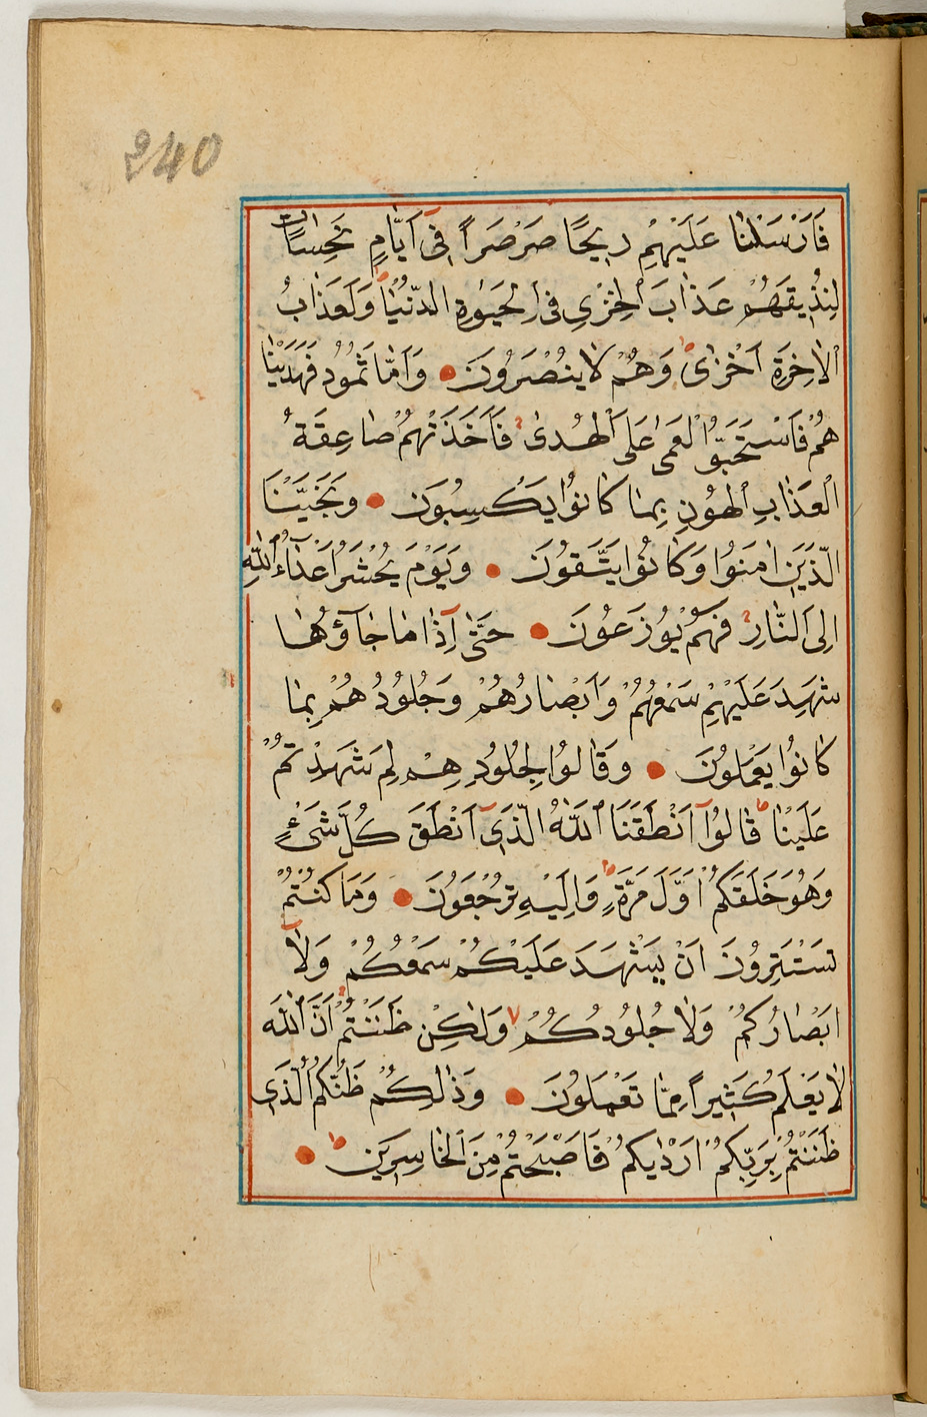 240
فَاَرْسَلْنَا عَلَيْهِمْ رِيحًا صَرْصَراً فِى اَيَّامٍ نَحِسَاتٍ
لِنُذِيقَهُمْ عَذَابَ الْخِزْىِ فِى الْحَيٰوةِ الدُّنْيَا ط وَلَعَذَابُ
الْاٰخِرَةِ اَخْزٰى ط وَهُمْ لَا يُنْصَرُونَ وَاَمَّا ثَمُودُ فَهَدَيْنَا
هُمْ فَاسْتَحَبُّوا الْعَمٰى عَلَى الْهُدٰى فَاَخَذَتْهُمْ صَاعِقَةُ
الْعَذَابِ الْهُونِ بِمَا كَانُوا يَكْسِبُونَ وَنَجَّيْنَا
الَّذِينَ اٰمَنُوا وَكَانُوا يَتَّقُونَ وَيَوْمَ يُحْشَرُ اَعْدَاءُ اللّٰهِ
اِلَى النَّارِ فَهُمْ يُوزَعُونَ حَتّٰى اِذَا مَا جَاؤُهَا
شَهِدَ عَلَيْهِمْ سَمْعُهُمْ وَاَبْصَارُهُمْ وَجُلُودُهُمْ بِمَا
كَانُوا يَعْمَلُونَ وَقَالُوا لِجُلُودِهِمْ لِمَ شَهِدْتُمْ
عَلَيْنَا ط قَالُوا اَنْطَقَنَا اللّٰهُ الَّذِى اَنْطَقَ كُلَّ شَىْءٍ
وَهُوَ خَلَقَكُمْ اَوَّلَ مَرَّةٍ ط وَاِلَيْهِ تُرْجَعُونَ وَمَا كُنْتُمْ
تَسْتَتِرُونَ اَنْ يَشْهَدَ عَلَيْكُمْ سَمْعُكُمْ وَلَا
اَبْصَارُكُمْ وَلَا جُلُودُكُمْ وَلٰكِنْ ظَنَنْتُمْ اَنَّ اللّٰهَ
لَا يَعْلَمُ كَثِيراً مِمَّا تَعْمَلُونَ وَذٰلِكُمْ ظَنُّكُمُ الَّذِى
ظَنَنْتُمْ بِرَبِّكُمْ اَرْدٰيكُمْ فَاَصْبَحْتُمْ مِنَ الْخَاسِرِينَ ط